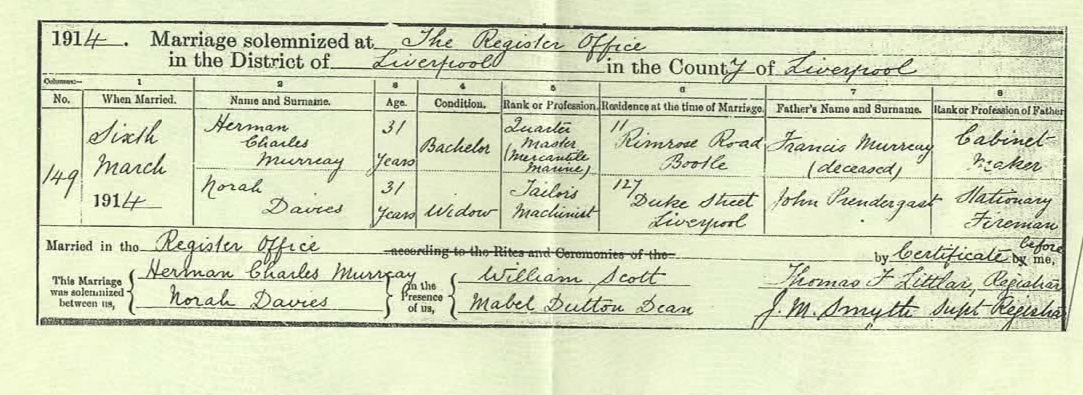 1914. Marriage solemnized at The Register Office
in the District of Liverpool in the County of Liverpool
Columns:— 1 2 3 4 5 6 7 8
No. When Married. Name and Surname. Age. Condition. Rank or Profession. Residence at the time of Marriage. Father's Name and Surname. Rank or Profession of Father
149
Sixth
March
1914
Herman
Charles
Murreay
31
Years
Bachelor
Quarter
Master
(Mercantile
Marine)
11
Rimrose Road
Bootle
Francis Murreay
(deceased)
Cabinet
Maker
Norah
Davies
31
Years
Widow
Tailor's
Machinist
127
Duke Street
Liverpool
John Prendergast
Stationary
Fireman
Married in the Register Office according to the Rites and Ceremonies of the by Certificate before by me,
This Marriage
was solemnized
between us,
Herman Charles Murreay
Norah Davies
in the
Presence
of us,
William Scott
Mabel Dutton Dean
Thomas F Littlar, Registrar
J. M. Smyth Supt Registrar